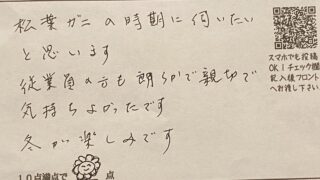 松葉ガニの時期に伺いたい
と思います
従業員の方も朗らかで親切で
気持ちよかったです
冬が楽しみです
スマホでも投稿
OK!チェック欄
記入後フロント
へお渡し下さい
10点満点で
点